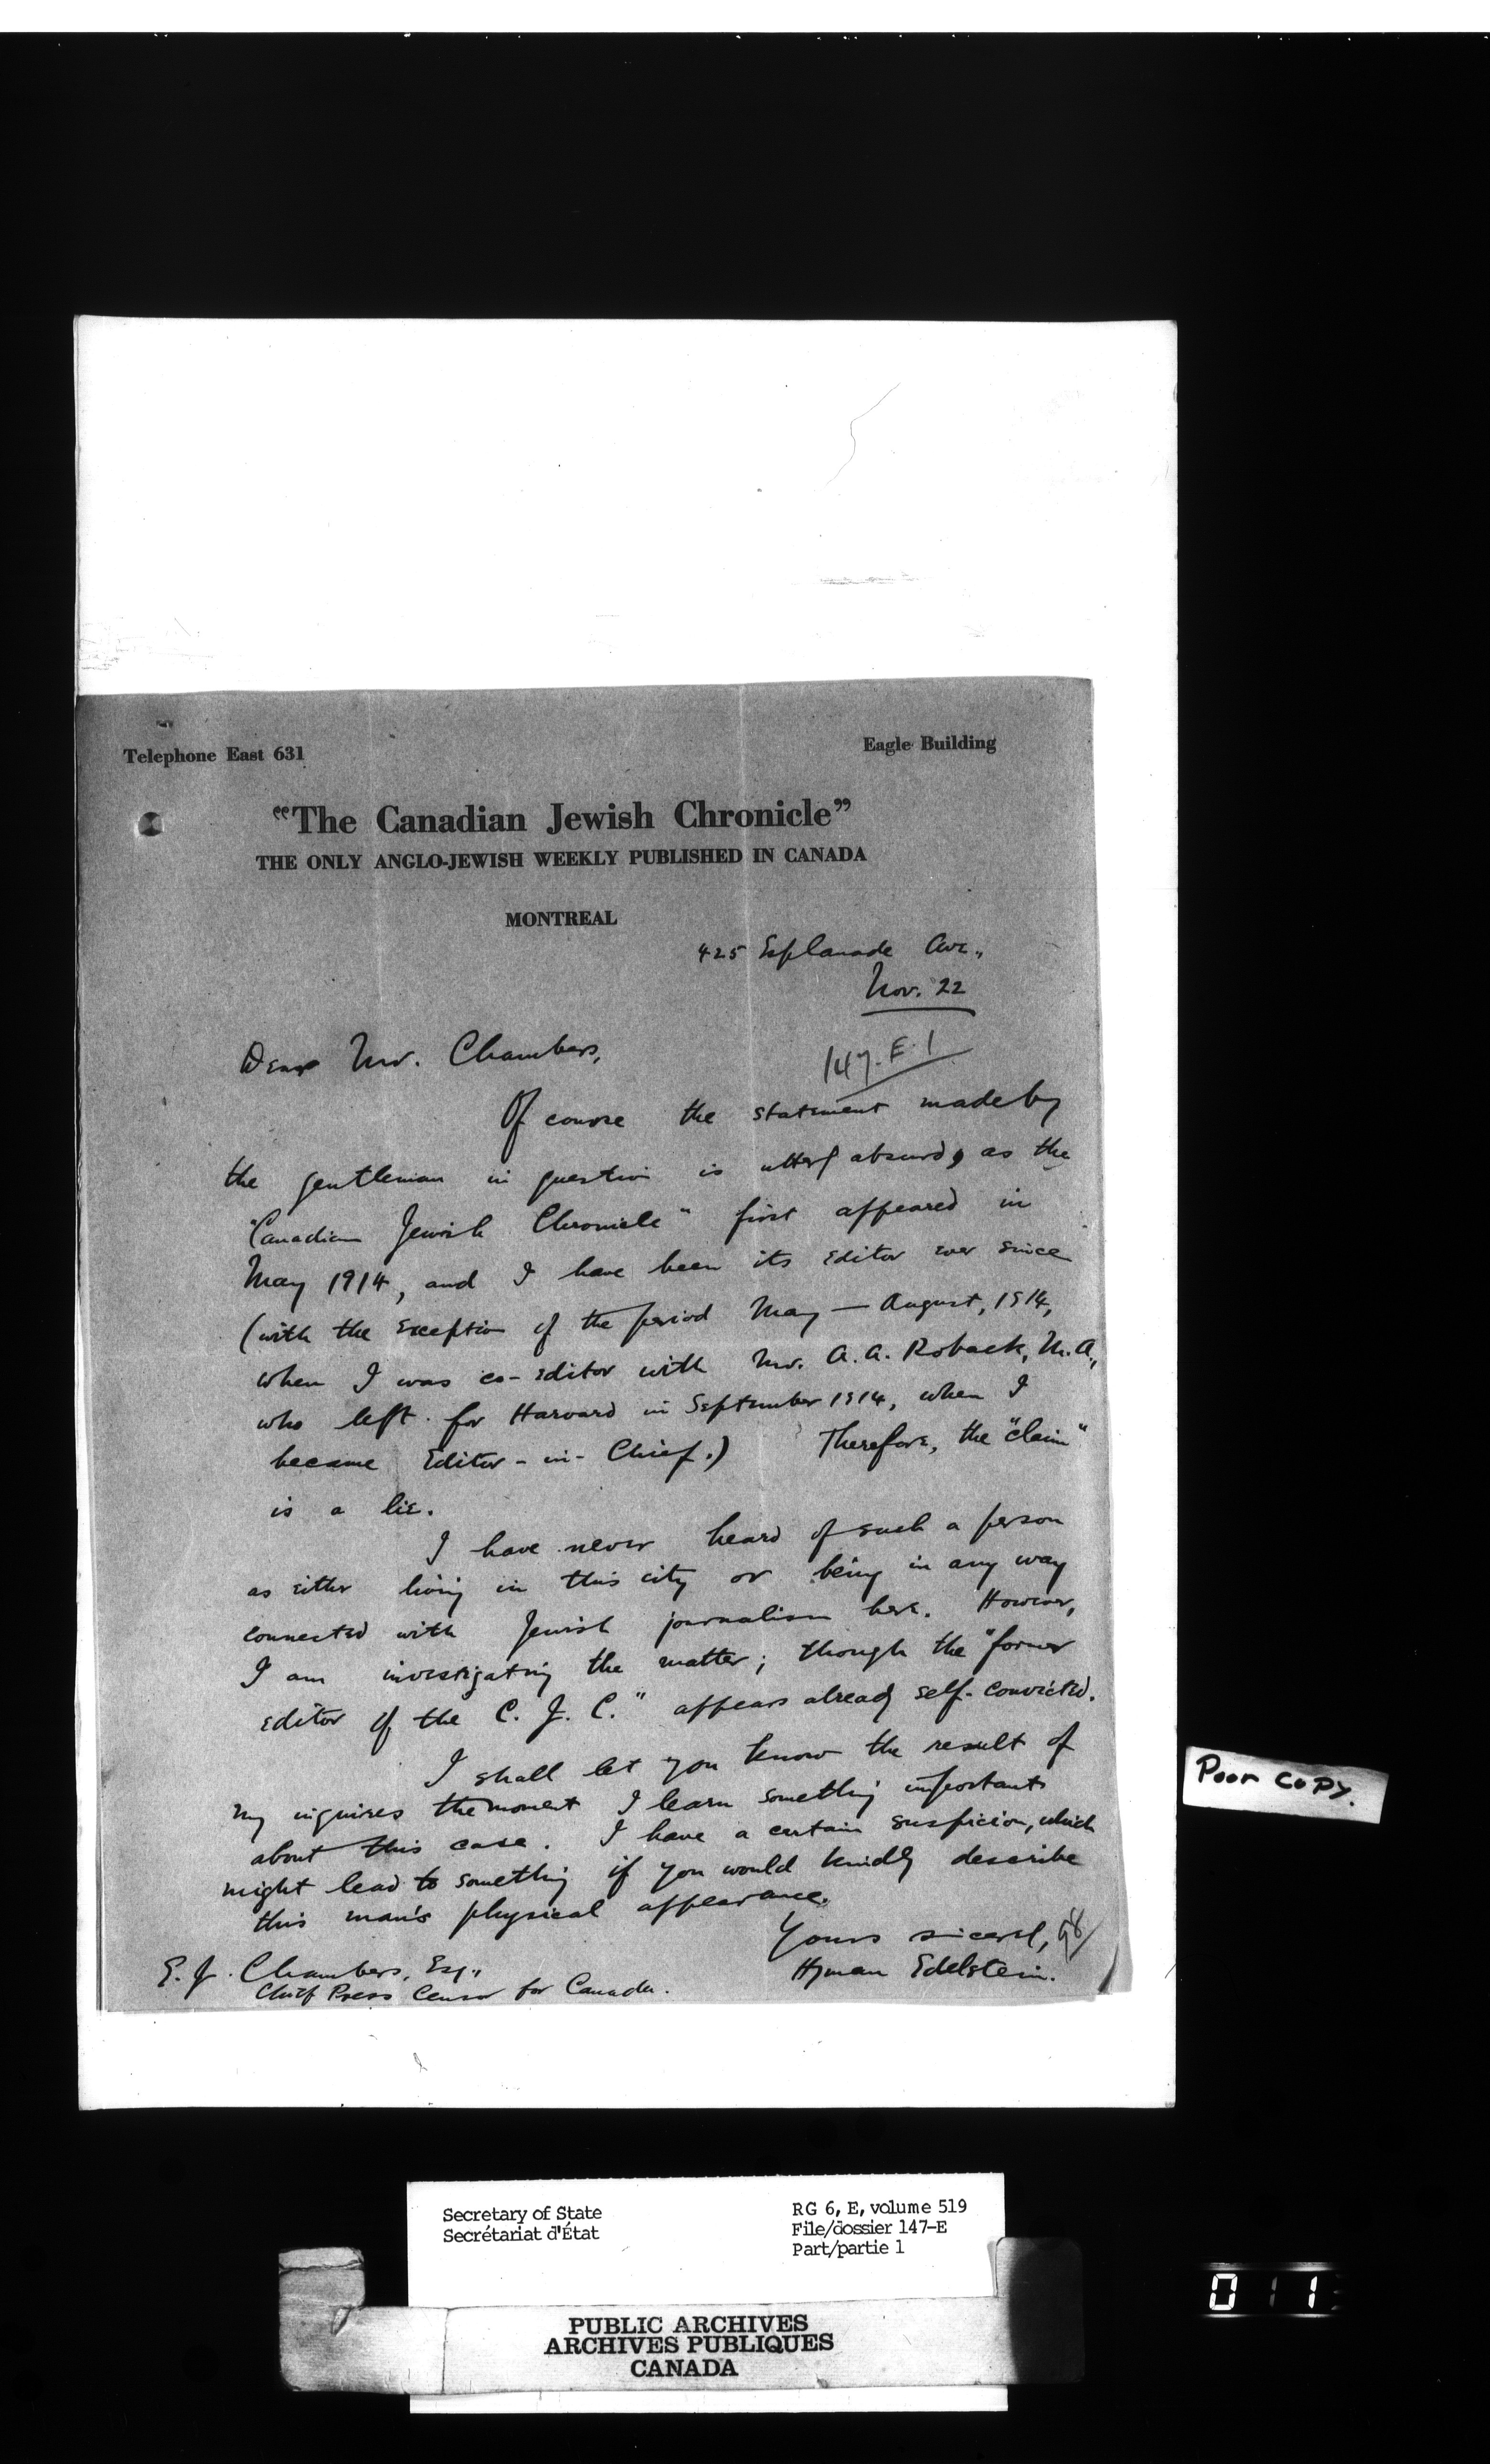 Telephone East 631
Eagle Building
"The Canadian Jewish Chronicle"
THE ONLY ANGLO-JEWISH WEEKLY PUBLISHED IN CANADA
MONTREAL
425 Esplanade Ave.,
Nov. 22
147. E. 1
Dear Mr. Chambers,
Of course the statement made by
the gentleman in question is utterly absurd, as the
"Canadian Jewish Chronicle" first appeared in
May 1914, and I have been its editor ever since
(with the exception of the period May — August, 1914,
when I was co-editor with Mr. A. A. Roback, M.A.,
who left for Harvard in September 1914, when I
became Editor-in-Chief.) Therefore, the "claim"
is a lie.
I have never heard of such a person
as either living in this city or being in any way
connected with Jewish journalism here. However,
I am investigating the matter; though the "former
editor of the C. J. C." appears already self-convicted.
I shall let you know the result of
my inquiries the moment I learn something important
about this case. I have a certain suspicion, which
might lead to something if you would kindly describe
this man's physical appearance.
Yours sincerely,
Hyman Edelstein.
E. J. Chambers, Esq.,
Chief Press Censor for Canada.
Poor copy.
Secretary of State
Secrétariat d'État
RG 6, E, volume 519
File/dossier 147-E
Part/partie 1
PUBLIC ARCHIVES
ARCHIVES PUBLIQUES
CANADA
0 1 1